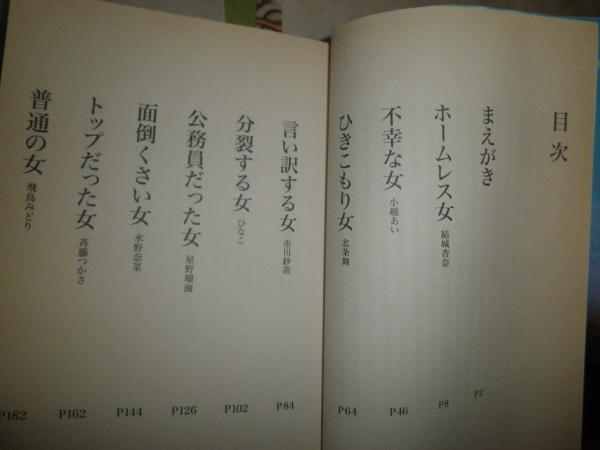 目次
まえがき P2
ホームレス女 結城杏奈 P8
不幸な女 小越あい P46
ひきこもり女 北条舞 P64
言い訳する女 市川紗苗 P84
分裂する女 ひなこ P102
公務員だった女 星野瑠海 P126
面倒くさい女 水野奈菜 P144
トップだった女 斉藤つかさ P162
普通の女 飛鳥みどり P182